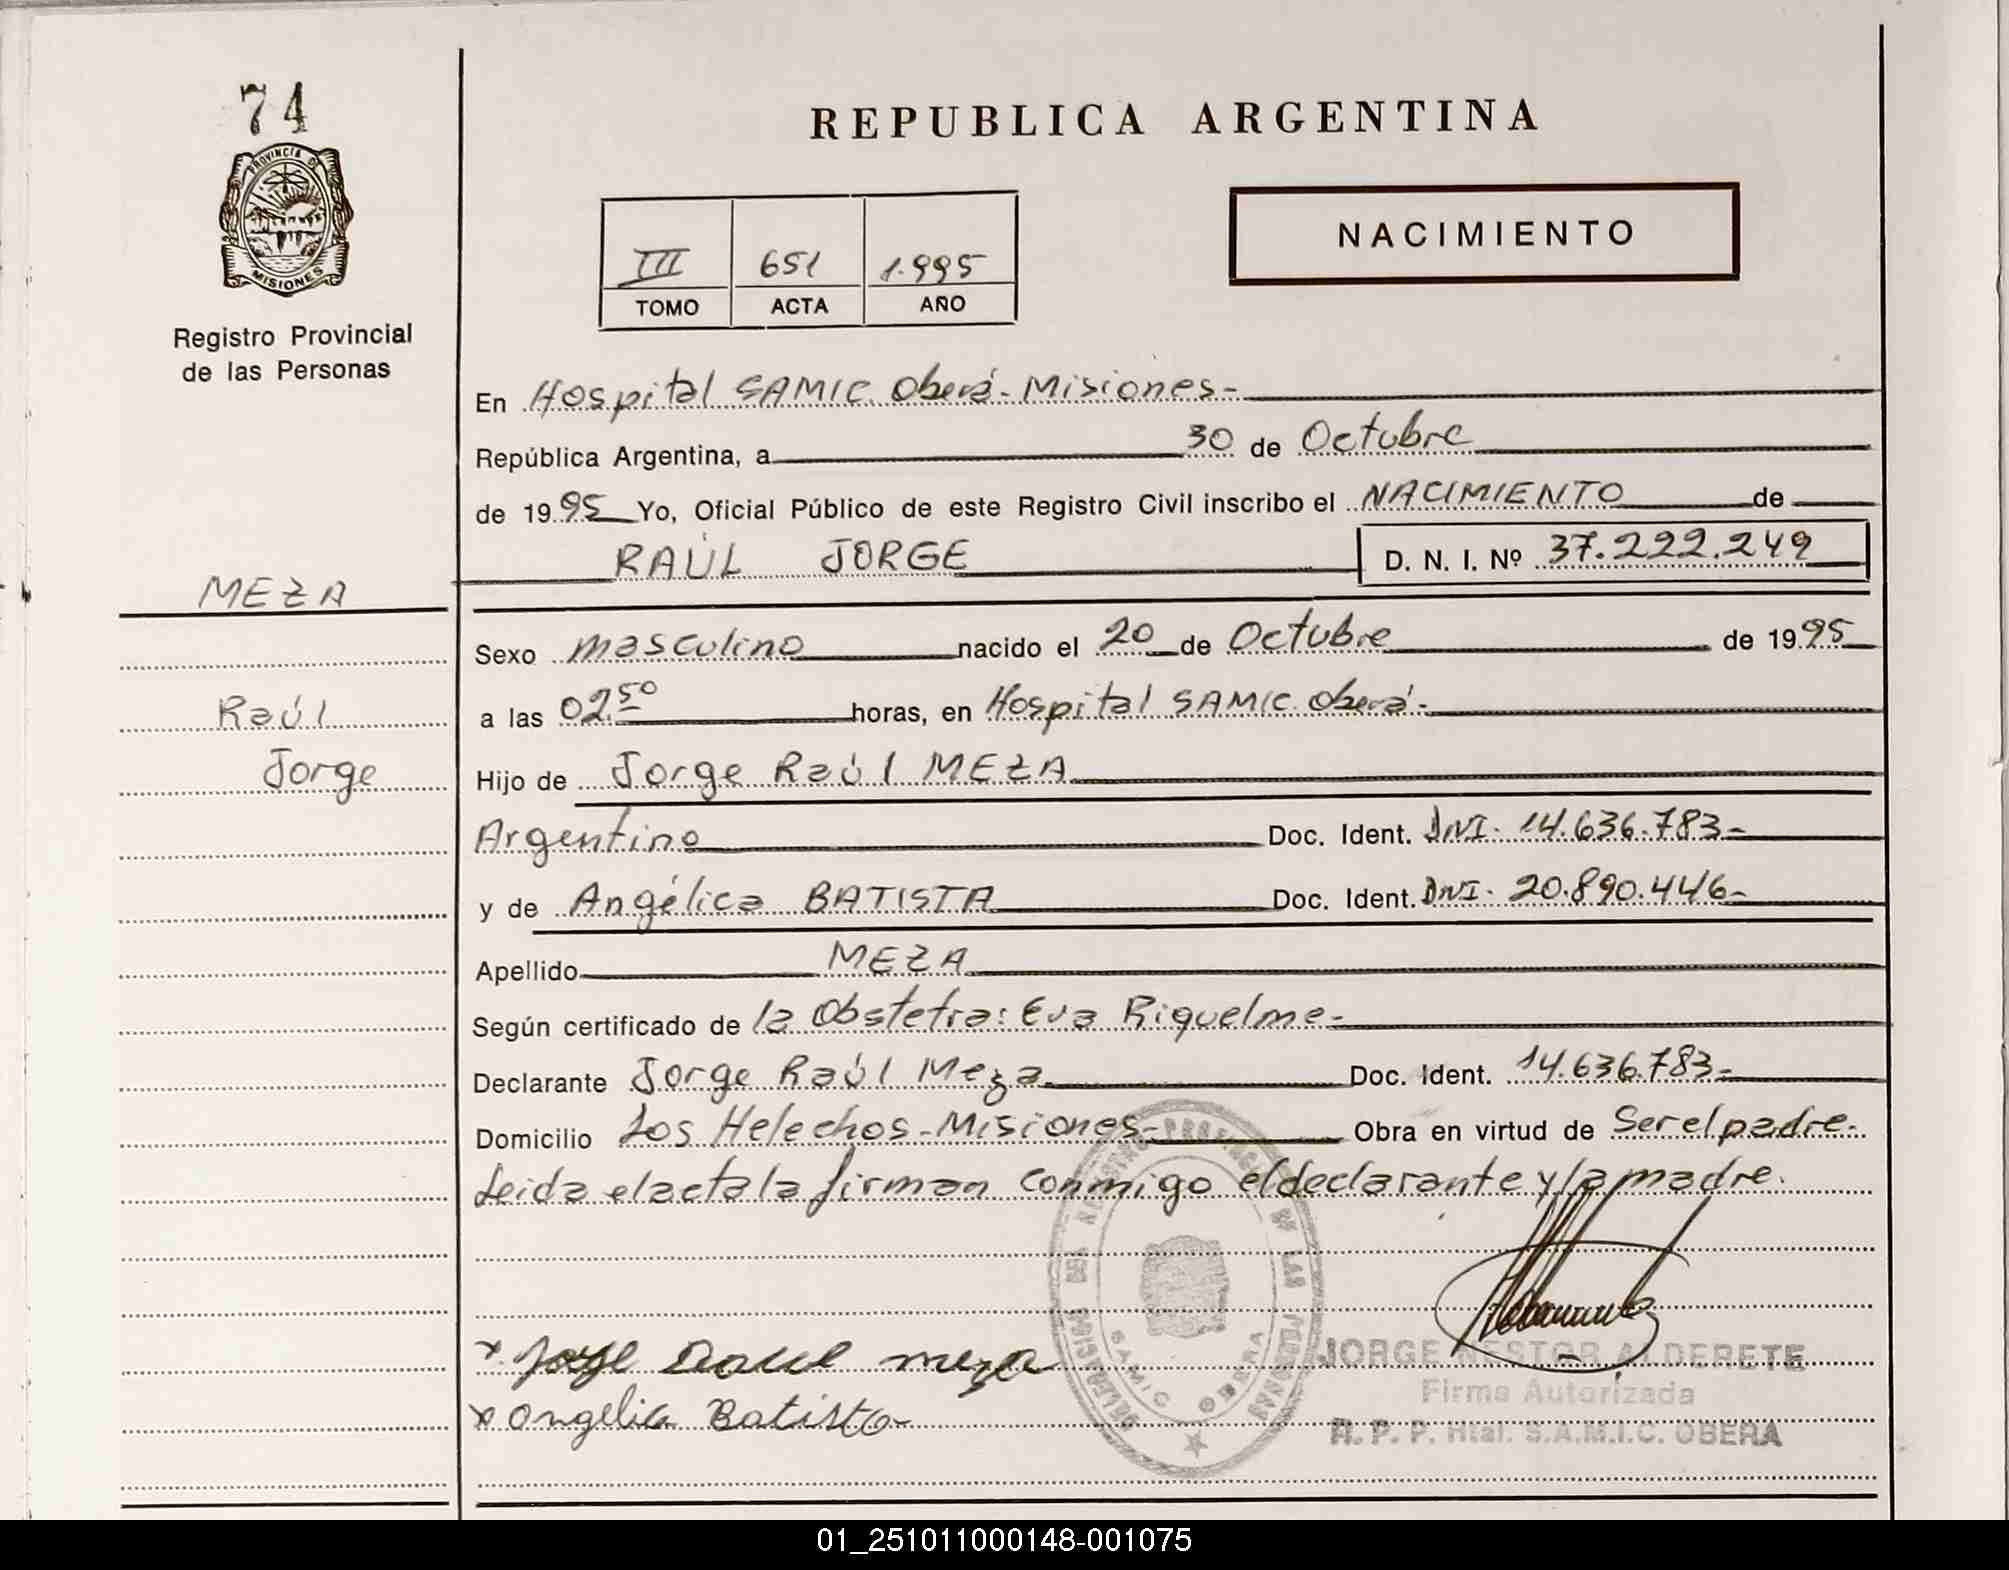 74
PROVINCIA DE
MISIONES
Registro Provincial
de las Personas
REPUBLICA ARGENTINA
NACIMIENTO
III 651 1.995
TOMO ACTA AÑO
En Hospital SAMIC. Oberá - Misiones -
República Argentina, a 30 de Octubre
de 1995 Yo, Oficial Público de este Registro Civil inscribo el NACIMIENTO de
RAÚL JORGE D. N. I. Nº 37.222.249
MEZA
Sexo masculino nacido el 20 de Octubre de 1995
Raúl
a las 02.50 horas, en Hospital SAMIC. Oberá -
Jorge
Hijo de Jorge Raúl MEZA
Argentino Doc. Ident. DNI. 14.636.783-
y de Angélica BATISTA Doc. Ident. DNI. 20.890.446-
Apellido MEZA
Según certificado de la Obstetra: Eva Riquelme-
Declarante Jorge Raúl Meza Doc. Ident. 14.636.783-
Domicilio Los Helechos - Misiones- Obra en virtud de Ser el padre.
Leida el acta la firman conmigo el declarante y la madre.
DELEGACION DEL REGISTRO PROVINCIAL DE LAS PERSONAS
SAMIC OBERA
x Jorge Raul meza
x Angelica Batista
JORGE NESTOR ALDERETE
Firma Autorizada
R. P. P. Htal. S.A.M.I.C. OBERA
01_251011000148-001075